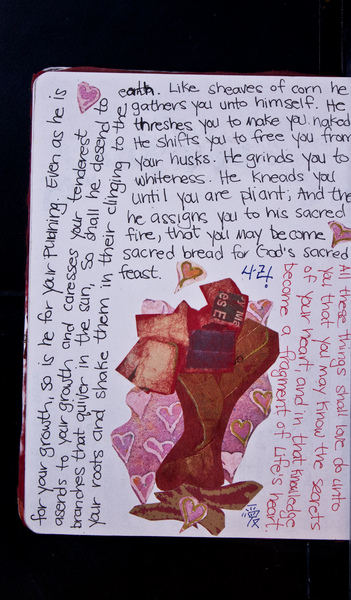 for your growth, so is he for your Pruning. Even as he is
asends to your growth and caresses your tenderest
branches that quiver in the sun, So shall he desend to
your roots and shake them in their clinging to the
earth. Like sheaves of corn he
gathers you unto himself. He
threshes you to make you naked
He shifts you to free you from
your husks. He grinds you to
whiteness. He Kneads you
until you are pliant; And the
he assigns you to his sacred
fire, that you may become
sacred bread for God's sacred
feast.
All these things shall love do unto
you that you may know the secrets
of your heart, and in that knowledge
become a fragment of Life's heart.